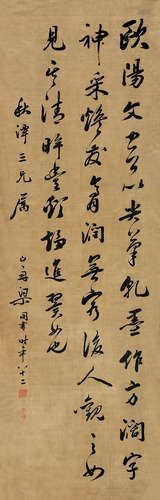 歐陽文忠公以尖筆乾墨作方闊字
神采煥發膏潤無窮後人觀之如
見其清眸豐頰趨進翼如也
秋潭三兄屬
山舟梁同書時年八十二